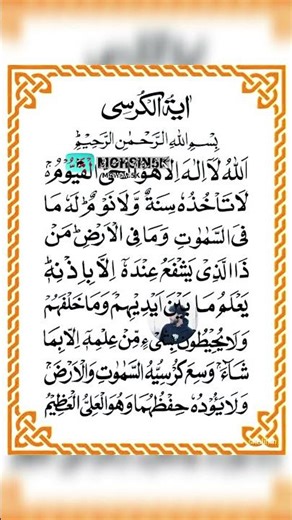 اٰیۃ الکرسی
بِسْمِ اللهِ الرَّحْمٰنِ الرَّحِیْمِ
اَللهُ لَاۤ اِلٰهَ اِلَّا هُوَ الْقَیُّوْمُ
لَا تَاْخُذُهٗ سِنَةٌ وَّلَا نَوْمٌ لَهٗ مَا
فِی السَّمٰوٰتِ وَمَا فِی الْاَرْضِ مَنْ
ذَا الَّذِیْ یَشْفَعُ عِنْدَهٗۤ اِلَّا بِاِذْنِهٖ
یَعْلَمُ مَا بَیْنَ اَیْدِیْهِمْ وَمَا خَلْفَهُمْ
وَلَا یُحِیْطُوْنَ مِّنْ عِلْمِهٖۤ اِلَّا بِمَا
شَآءَ وَسِعَ كُرْسِیُّهُ السَّمٰوٰتِ وَالْاَرْضَ
وَلَا یَئُوْدُهٗ حِفْظُهُمَا وَهُوَ الْعَلِیُّ الْعَظِیْمُ